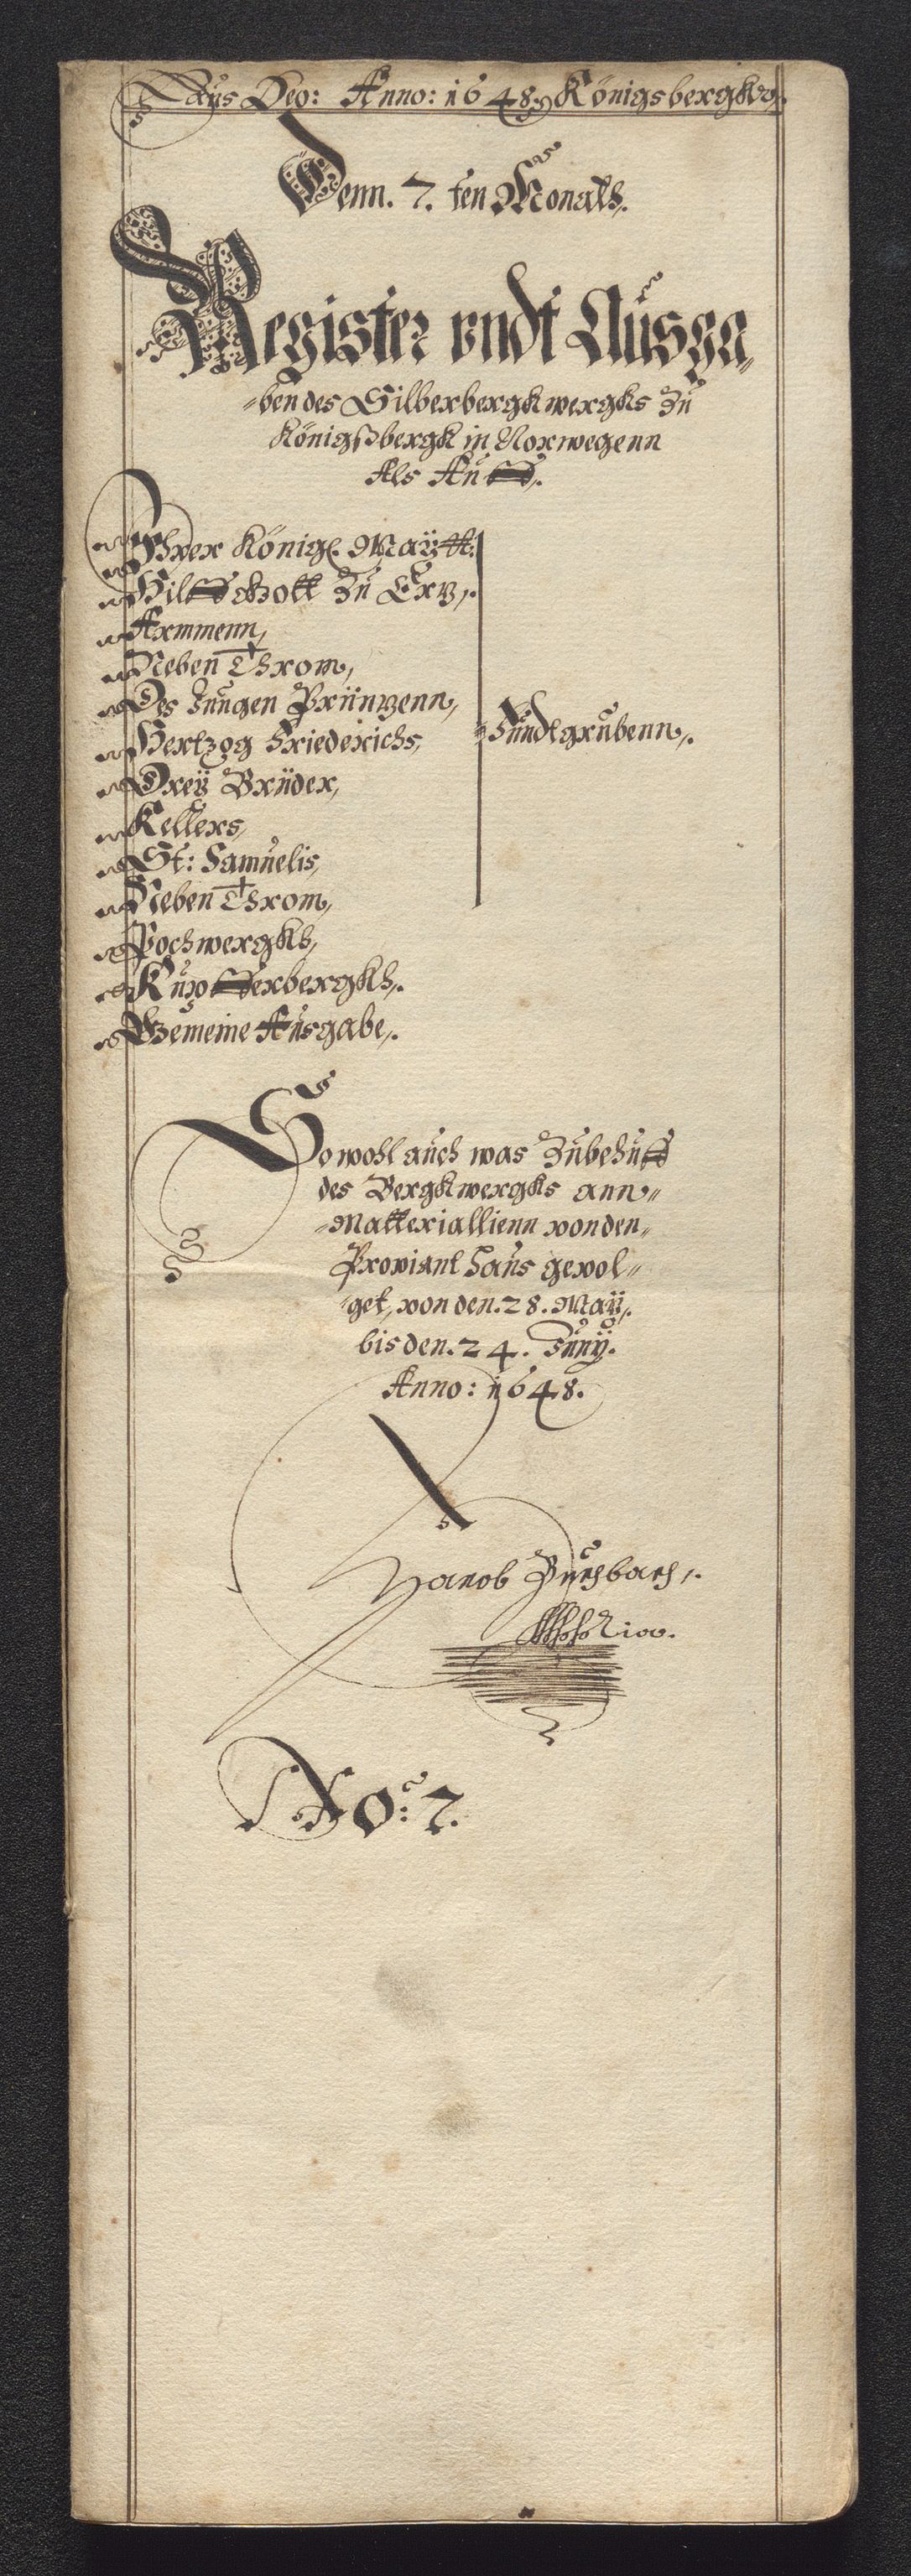 Laus Deo: Anno: 1648. Königsbergk.
Denn. 7. ten Monats.
Register undt Ausga„
„ben des Silberbergkwergks zu
Königßbergk in Norwegenn
Als Auff.
Ihrer Königl. Maÿtt:
Hilff Gott zu Ertz,.
Armmenn,
Neben Throm,
Des Jungen Prüntzenn,
Hertzog Friederichs,
Dreÿ Brüder,
Kellers,
St: Samuelis,
Neben Throm,
Fundtgrubenn,.
Pochwergks,
Kupfferbergks,.
Gemeine Ausgabe,.
So wohl auch was Zubehuff
des Bergkwergks ann„
„Matteriallienn von den„
Proviant Haus gevol„
„get, von den. 28. Maÿ,.
bis den. 24. Junÿ.
Anno: 1648.
Jacob Buchbach,.
No: 7.